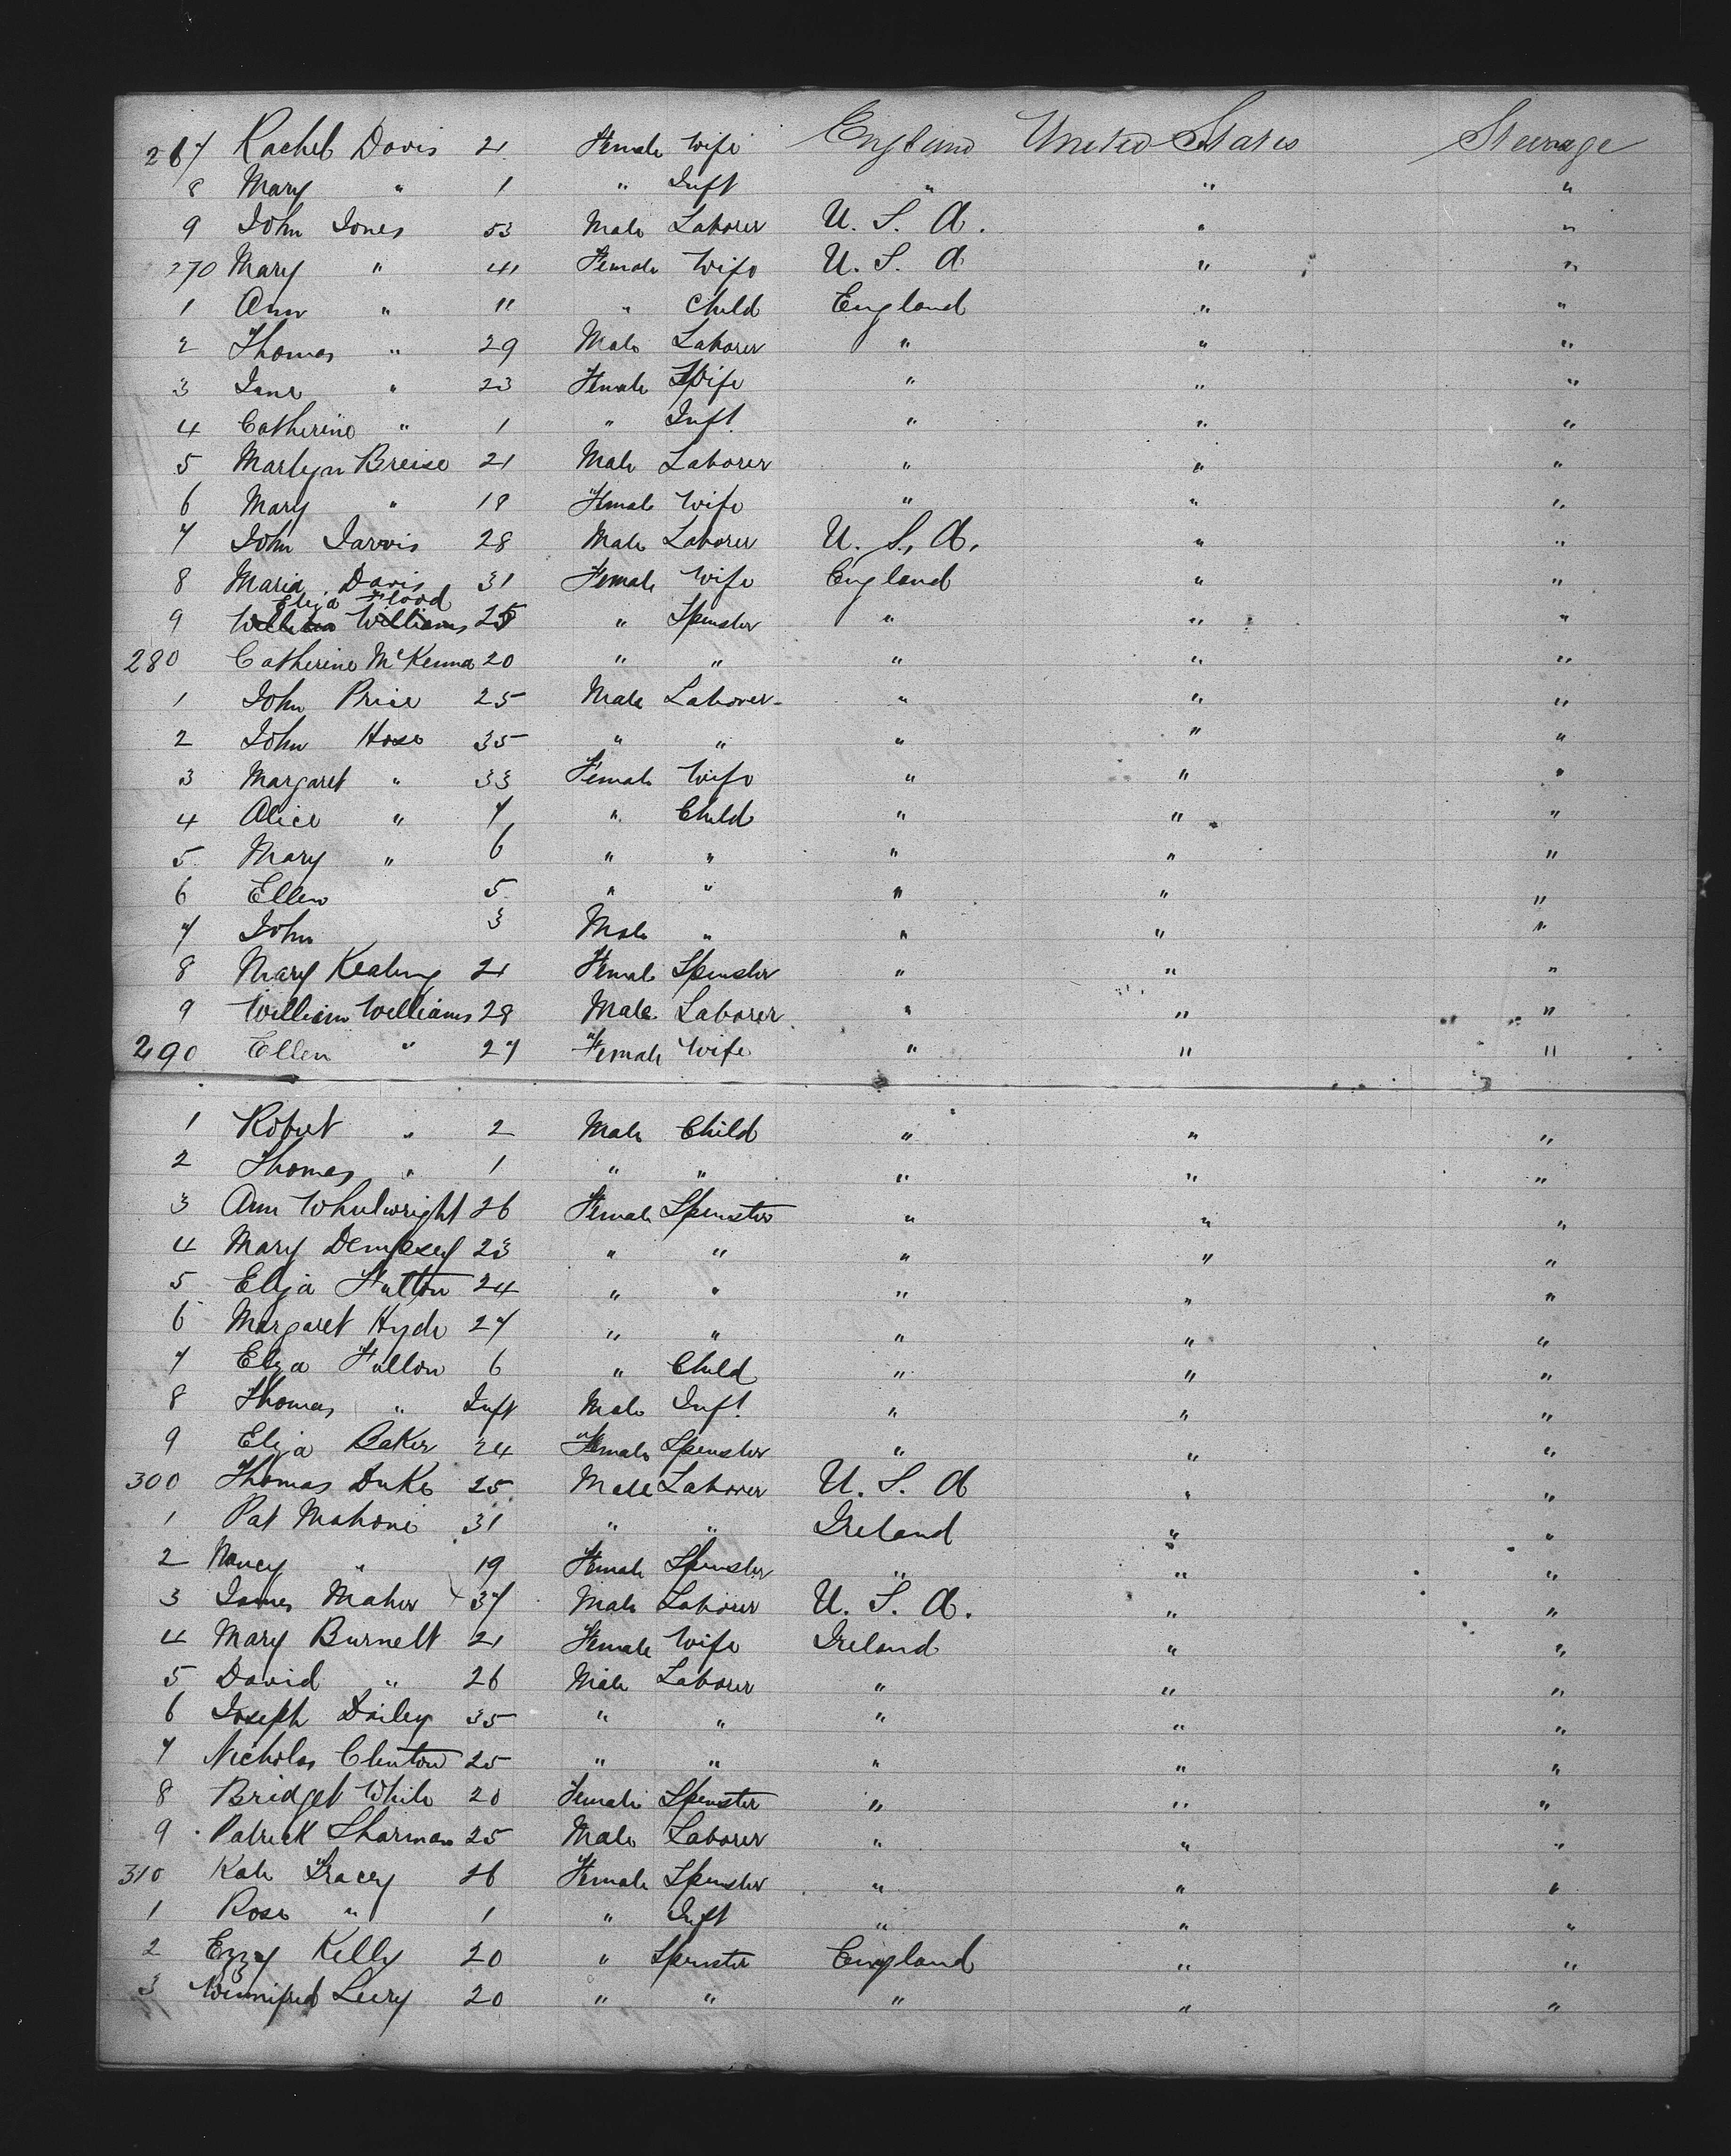 267 Rachel Davis 21 Female Wife England United States Steerage
8 Mary " 1 " Inft " " "
9 John Jones 53 Male Laborer U. S. A. " "
270 Mary " 41 Female Wife U. S. A " "
1 Ann " 11 " Child England " "
2 Thomas " 29 Male Laborer " " "
3 Jane " 23 Female Wife " " "
4 Catherine " 1 " Inft. " " "
5 Martyn Breise 21 Male Laborer " " "
6 Mary " 18 Female Wife " " "
7 John Jarvis 28 Male Laborer U. S. A. " "
8 Maria Davis 31 Female Wife England " "
Eliza Flood
9 William Williams 25 " Spinster " " "
280 Catherine McKenna 20 " " " " "
1 John Price 25 Male Laborer " " "
2 John Hose 35 " " " " "
3 Margaret " 33 Female Wife " " "
4 Alice " 7 " Child " " "
5 Mary " 6 " " " " "
6 Ellen 5 " " " " "
7 John 3 Male " " " "
8 Mary Keating 21 Female Spinster " " "
9 William Williams 28 Male Laborer " " "
290 Ellen " 27 Female Wife " " "
1 Robert " 2 Male Child " " "
2 Thomas " 1 " " " " "
3 Ann Wheelwright 26 Female Spinster " " "
4 Mary Dempsey 23 " " " " "
5 Eliza Fulton 24 " " " " "
6 Margaret Hyde 27 " " " " "
7 Eliza Fullon 6 " Child " " "
8 Thomas " Inft Male Inft. " " "
9 Eliza Baker 24 Female Spinster " " "
300 Thomas Duke 25 Male Laborer U. S. A " "
1 Pat Mahone 31 " " Ireland " "
2 Nancy " 19 Female Spinster " " "
3 James Maher 37 Male Laborer U. S. A. " "
4 Mary Burnett 21 Female Wife Ireland " "
5 David " 26 Male Laborer " " "
6 Joseph Dailey 35 " " " " "
7 Nicholas Clinton 25 " " " " "
8 Bridget White 20 Female Spinster " " "
9 Patrick Sharman 25 Male Laborer " " "
310 Kate Tracey 26 Female Spinster " " "
1 Rose " 1 " Inft " " "
2 Kelly 20 " Spinster England " "
3 Winnifred Leery 20 " " " " "